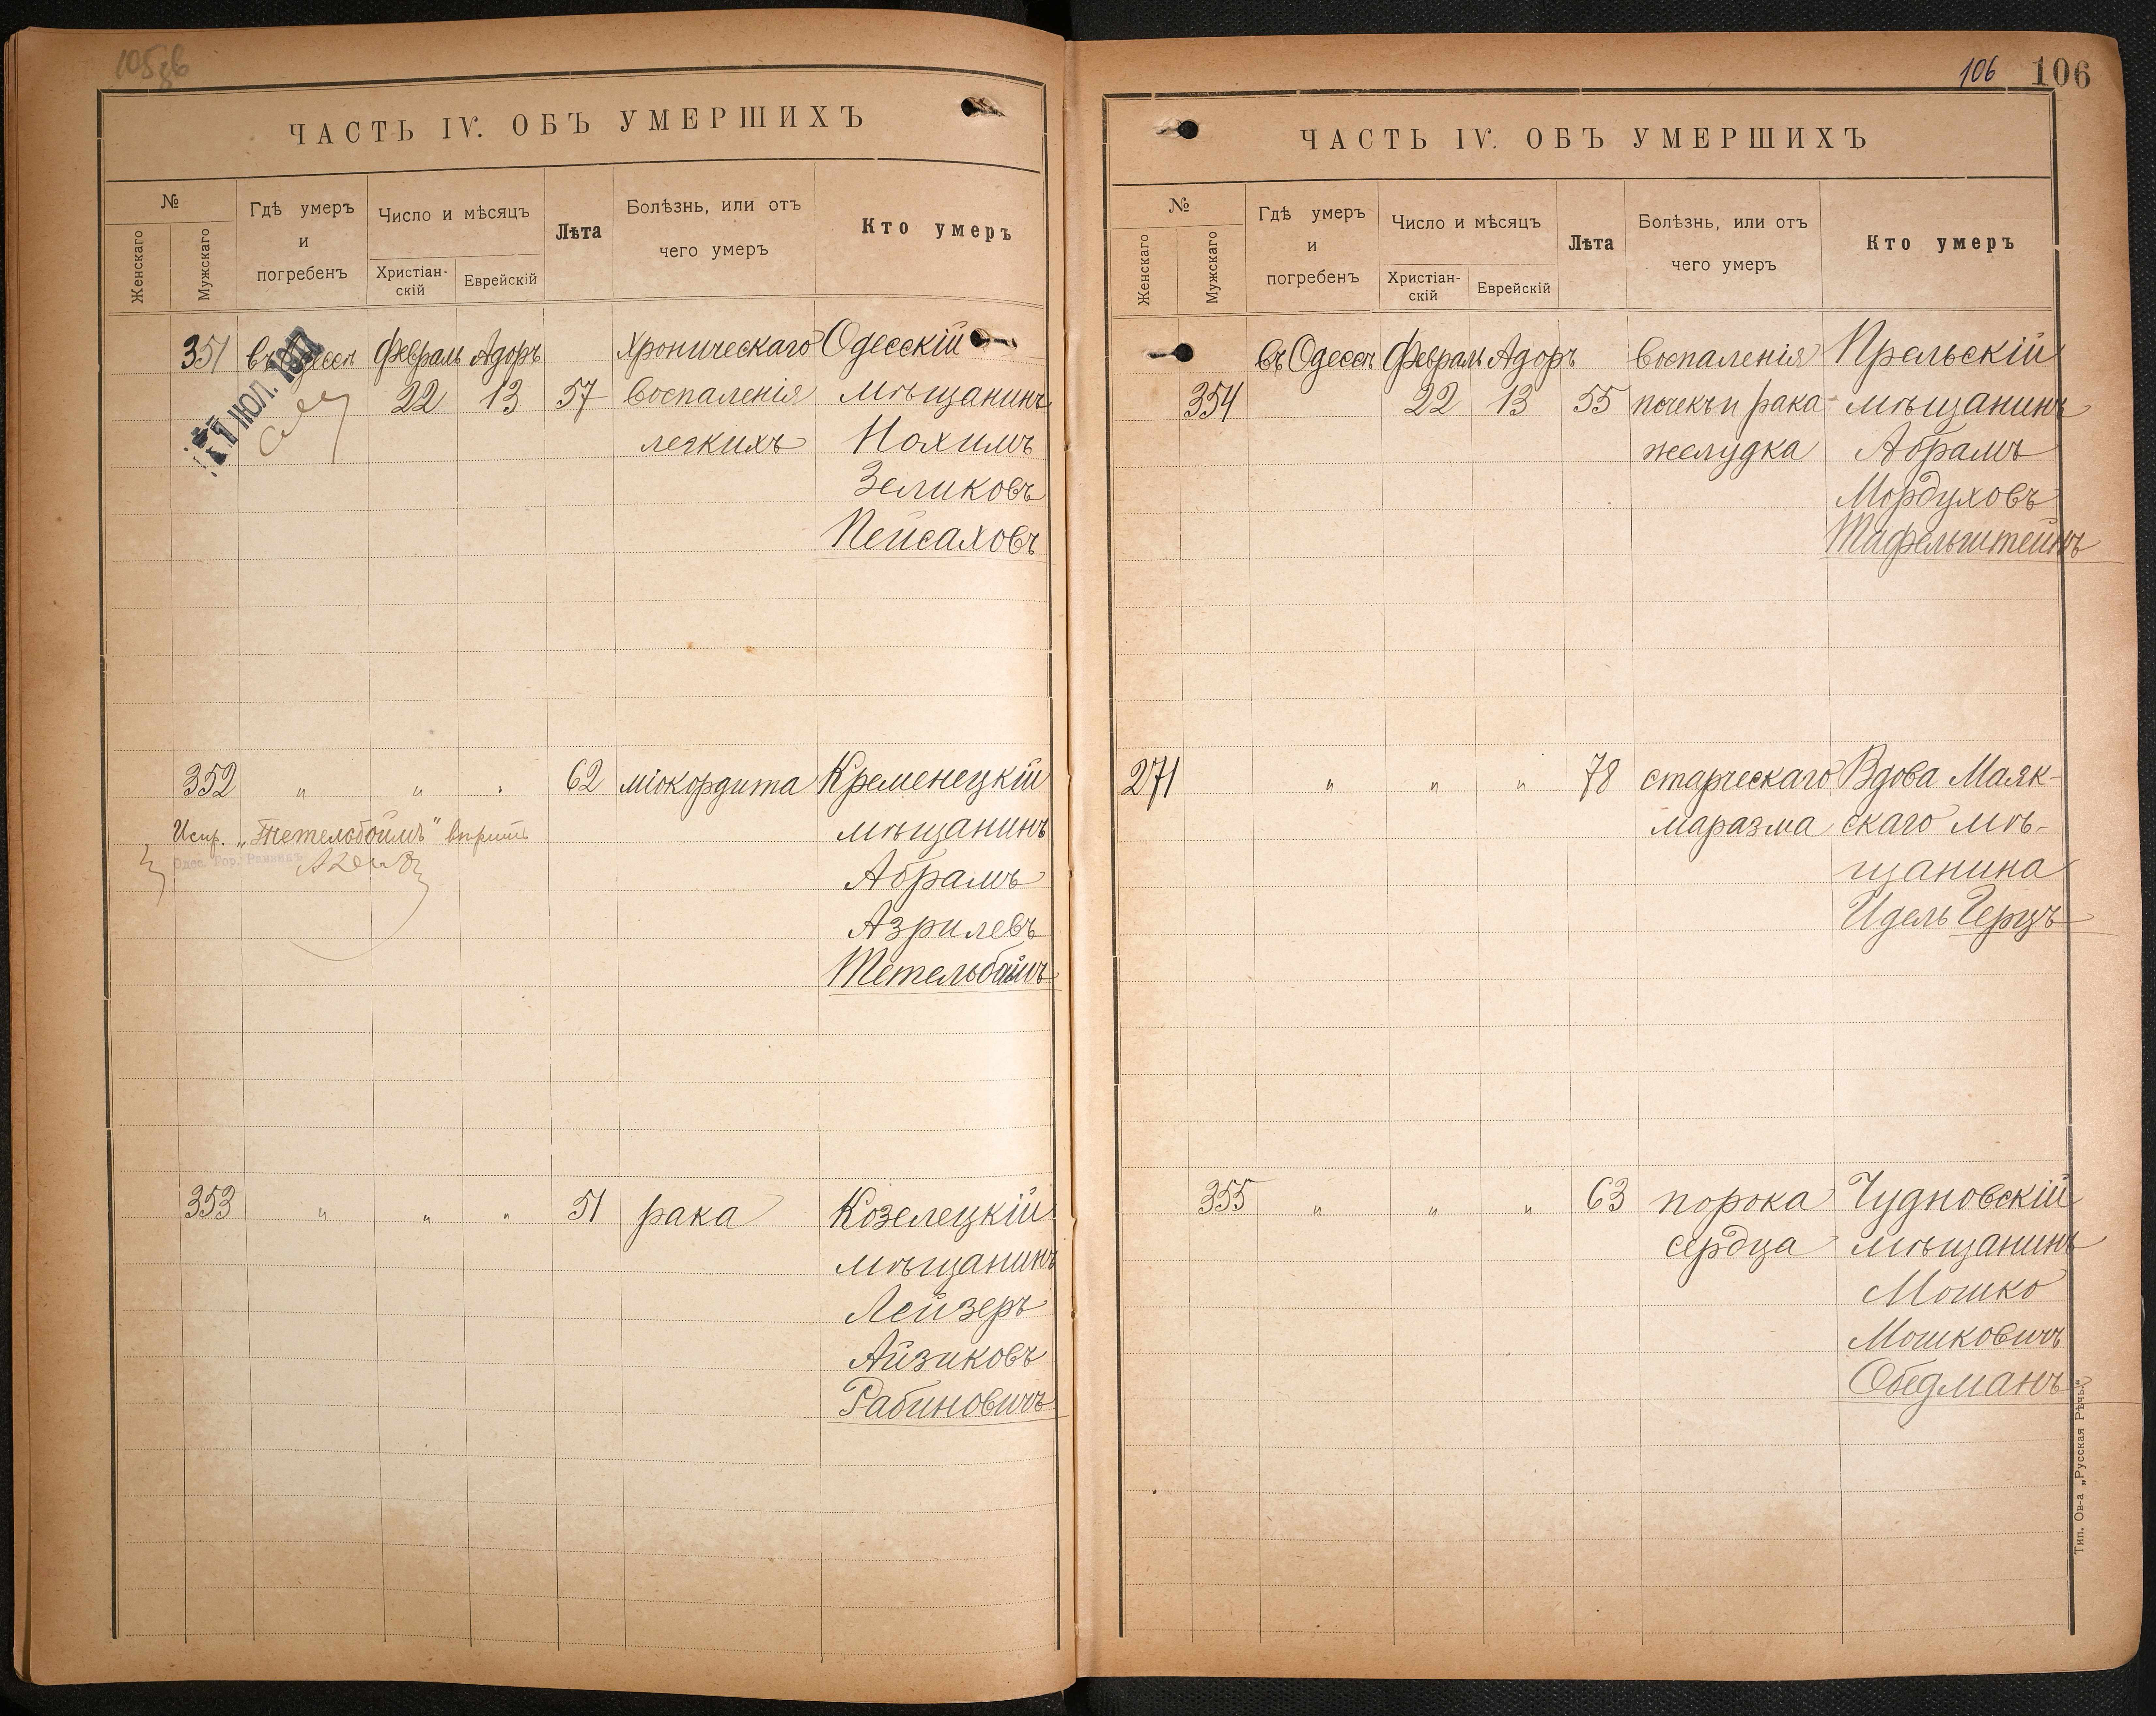 105зв
ЧАСТЬ IV. ОБЪ УМЕРШИХЪ
№
Женскаго
Мужскаго
Гдѣ умеръ
и
погребенъ
Число и мѣсяцъ
Христіан-
скій
Еврейскій
Лѣта
Болѣзнь, или отъ
чего умеръ
Кто умеръ
351 въ Одессѣ Февраль Адоръ хроническаго Одесскій
22 13 57 воспаленія мѣщанинъ
легкихъ Нохимъ
Зеликовъ
Пейсаховъ
ИЮЛ. 1917
352 " " " 62 міокордита Кременецкій
Испр. „Тетельбоймъ" вѣрить мѣщанинъ
Одес. Гор. Раввинъ
Абрамъ
Азрилевъ
Тетельбоймъ
353 " " " 51 рака Козелецкій
мѣщанинъ
Лейзеръ
Айзиковъ
Рабиновичъ
106 106
ЧАСТЬ IV. ОБЪ УМЕРШИХЪ
№
Женскаго
Мужскаго
Гдѣ умеръ
и
погребенъ
Число и мѣсяцъ
Христіан-
скій
Еврейскій
Лѣта
Болѣзнь, или отъ
чего умеръ
Кто умеръ
въ Одессѣ Февраль Адоръ воспаленія
354 22 13 55 почекъ и рака мѣщанинъ
желудка Абрамъ
Мордуховъ
Тафельштейнъ
271 " " " 78 старческаго Вдова Маяк-
маразма скаго мѣ-
щанина
Идель Герцъ
355 " " " 63 порока Чудновскій
сердца мѣщанинъ
Мошко
Мошковичъ
Обедманъ
Тип. Ов-а „Русская Рѣчь"